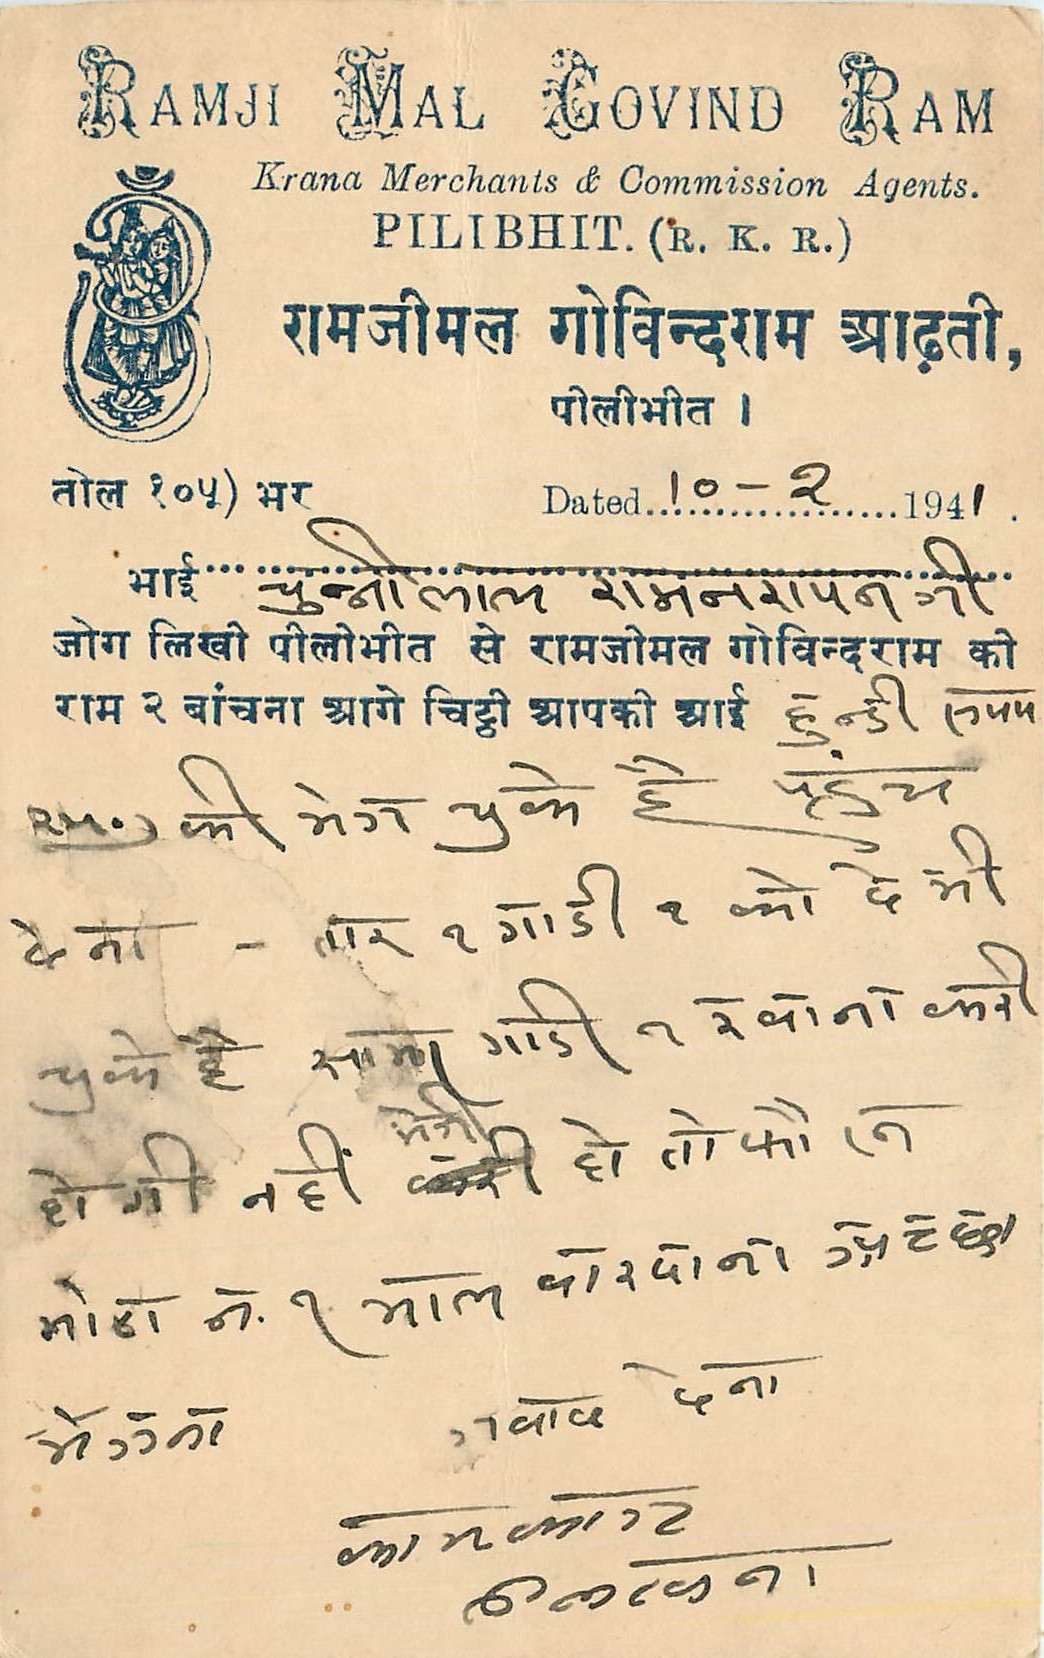 RAMJI MAL GOVIND RAM
Krana Merchants & Commission Agents.
PILIBHIT. (R. K. R.)
रामजीमल गोविन्दराम आढ़ती,
पीलीभीत ।
तोल १०५) भर Dated 10-2 1941.
भाई चुन्नीलाल रामनरायन जी
जोग लिखी पीलीभीत से रामजीमल गोविन्दराम की
राम २ बांचना आगे चिट्ठी आपकी आई हुन्डी रुपया
२५०) की भेज चुके है पहुंच
देना - तार १ गाडी १ को दे भी
चुके है साफ गाडी १ रवाना करी
होगी नहीं भेजी हो तो फौरन
मोटा नं. १ माल बारदाना
भेजना जवाब देना
कामकाज
लिखना